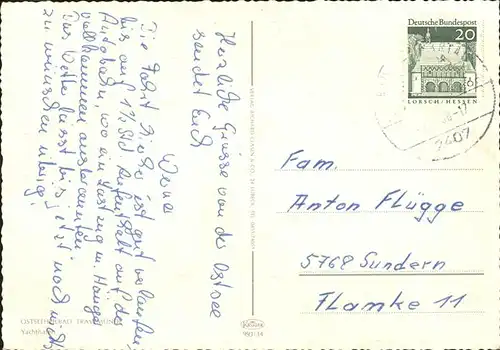 Herzliche Grüsse von der Ostsee
sendet Euch
Werner
Die Fahrt hierher ist gut verlaufen,
bis auf 1½ Std. Aufenthalt auf der
Autobahn, wo ein Lastzug m. Hänger
vollkommen ausbrannte.
Das Wetter lässt bis jetzt noch nichts
zu wünschen übrig!
OSTSEEHEILBAD TRAVEMÜNDE
Yachthafen
9501-14
Deutsche Bundespost
20
LORSCH/HESSEN
2407
Fam.
Anton Flügge
5768 Sundern
Flamke 11